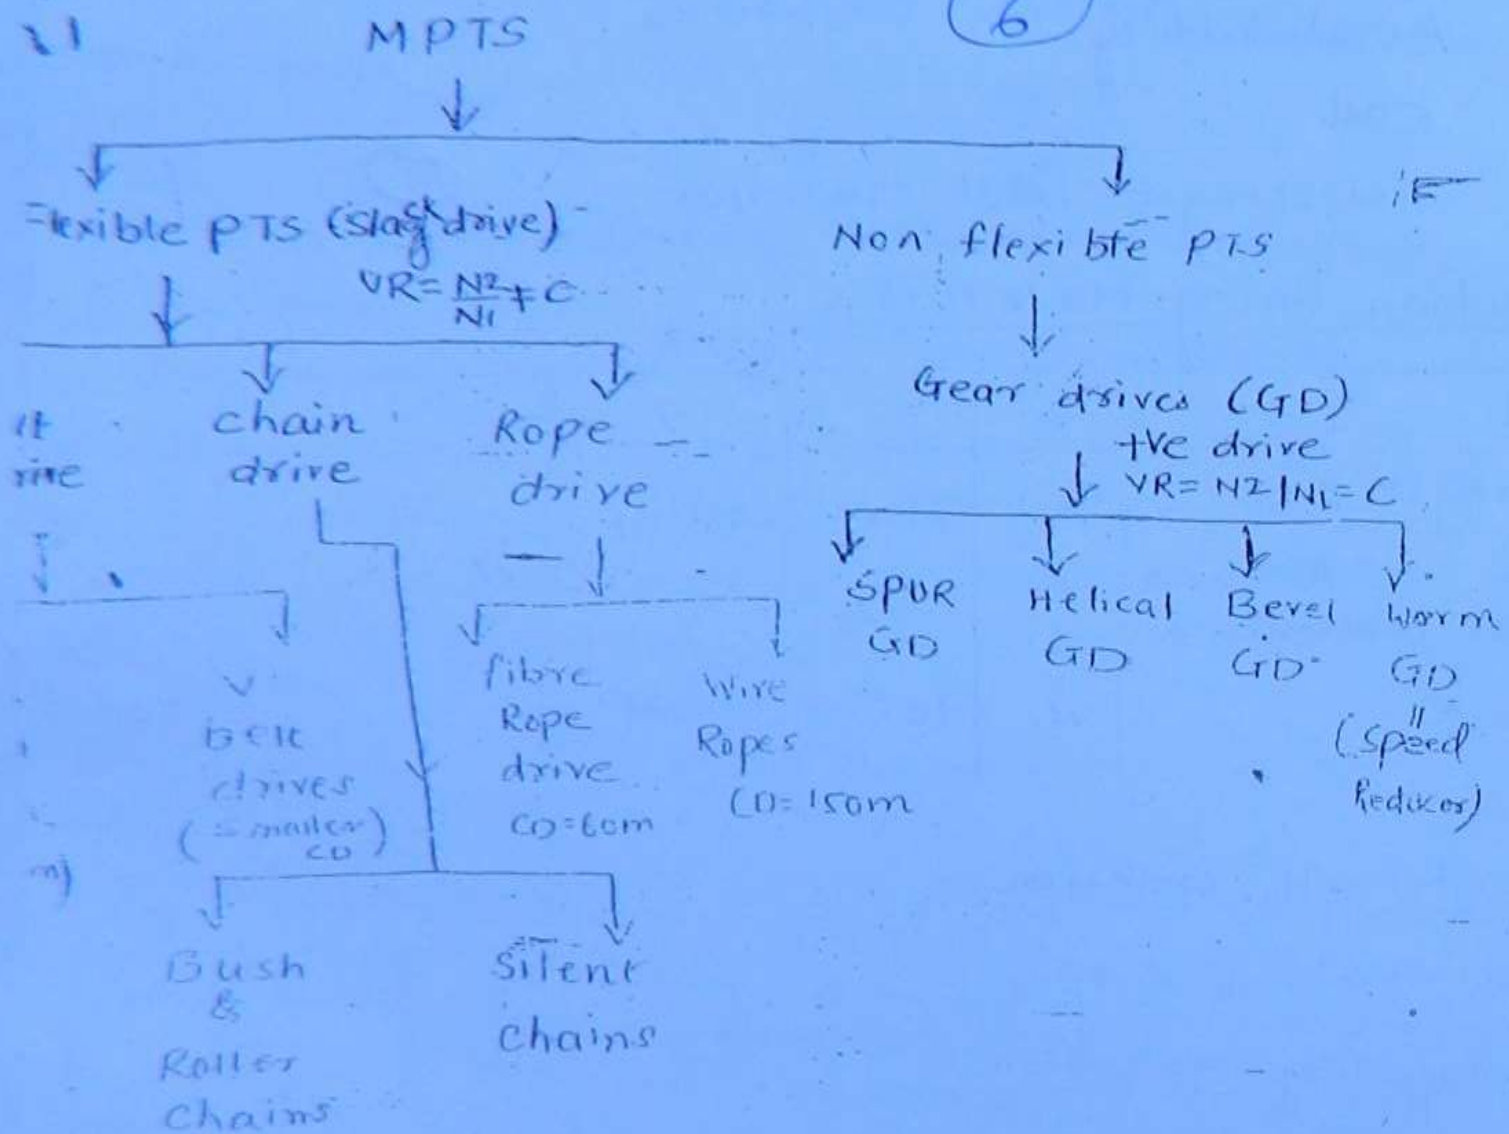 6
MPTS
Flexible PTS (Slack drive)
VR = N2/N1 ≠ C
Non flexible PTS
Gear drives (GD)
+ve drive
VR = N2/N1 = C
chain
drive
Rope
drive
SPUR
GD
Helical
GD
Bevel
GD
Worm
GD
=
(Speed
Reducer)
V
belt
drives
(smaller
CD)
fibre
Rope
drive
CD=60m
Wire
Ropes
CD=150m
Bush
&
Roller
Chains
Silent
Chains